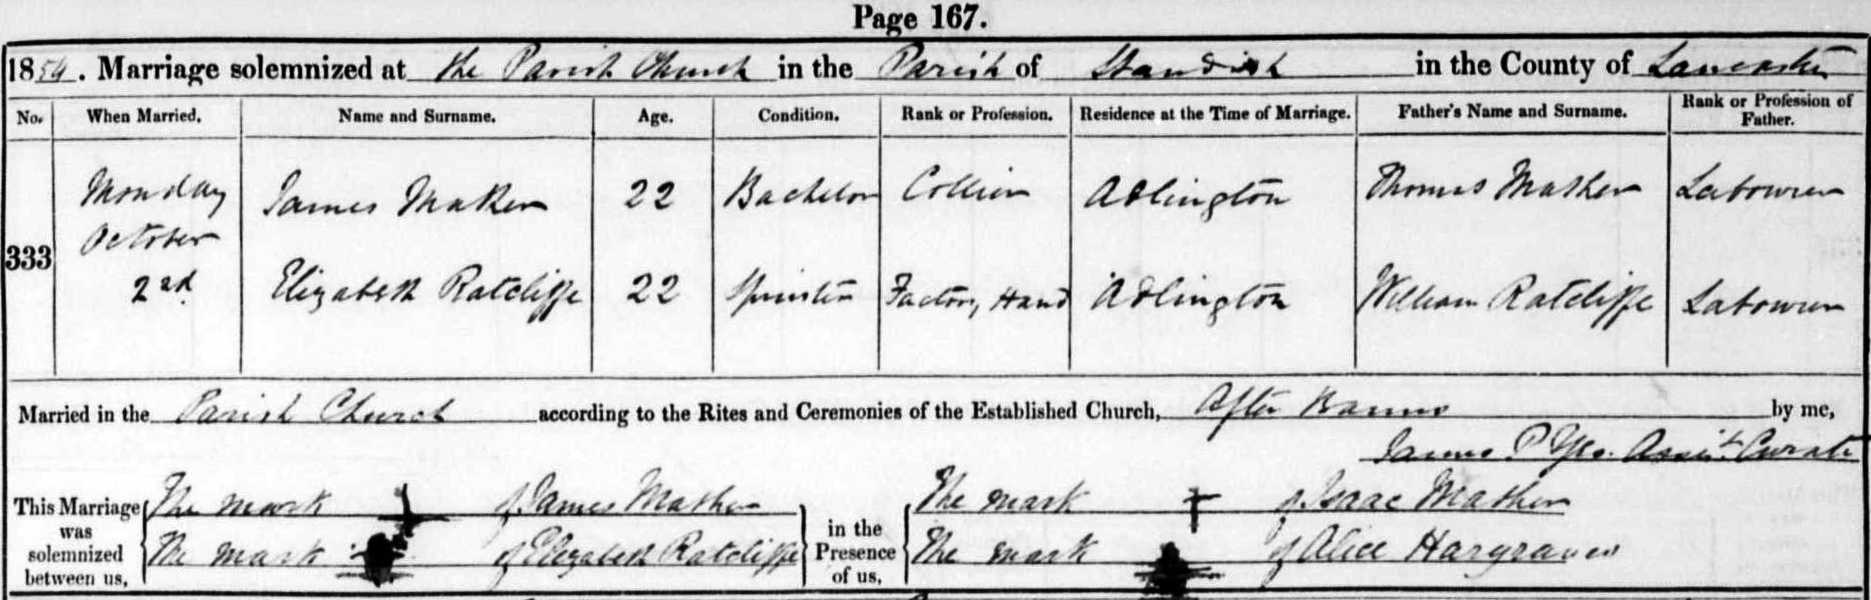 Page 167.
1854. Marriage solemnized at the Parish Church in the Parish of Standish in the County of Lancaster
No. When Married. Name and Surname. Age. Condition. Rank or Profession. Residence at the Time of Marriage. Father's Name and Surname. Rank or Profession of Father.
333 Monday October 2nd James Mather 22 Bachelor Collier Adlington Thomas Mather Labourer
Elizabeth Ratcliffe 22 Spinster Factory Hand Adlington William Ratcliffe Labourer
Married in the Parish Church according to the Rites and Ceremonies of the Established Church, After Banns by me,
James P Yeo. Assist. Curate
This Marriage was solemnized between us, The mark of James Mather
The mark of Elizabeth Ratcliffe
in the Presence of us, The mark of Isaac Mather
The mark of Alice Hargraves